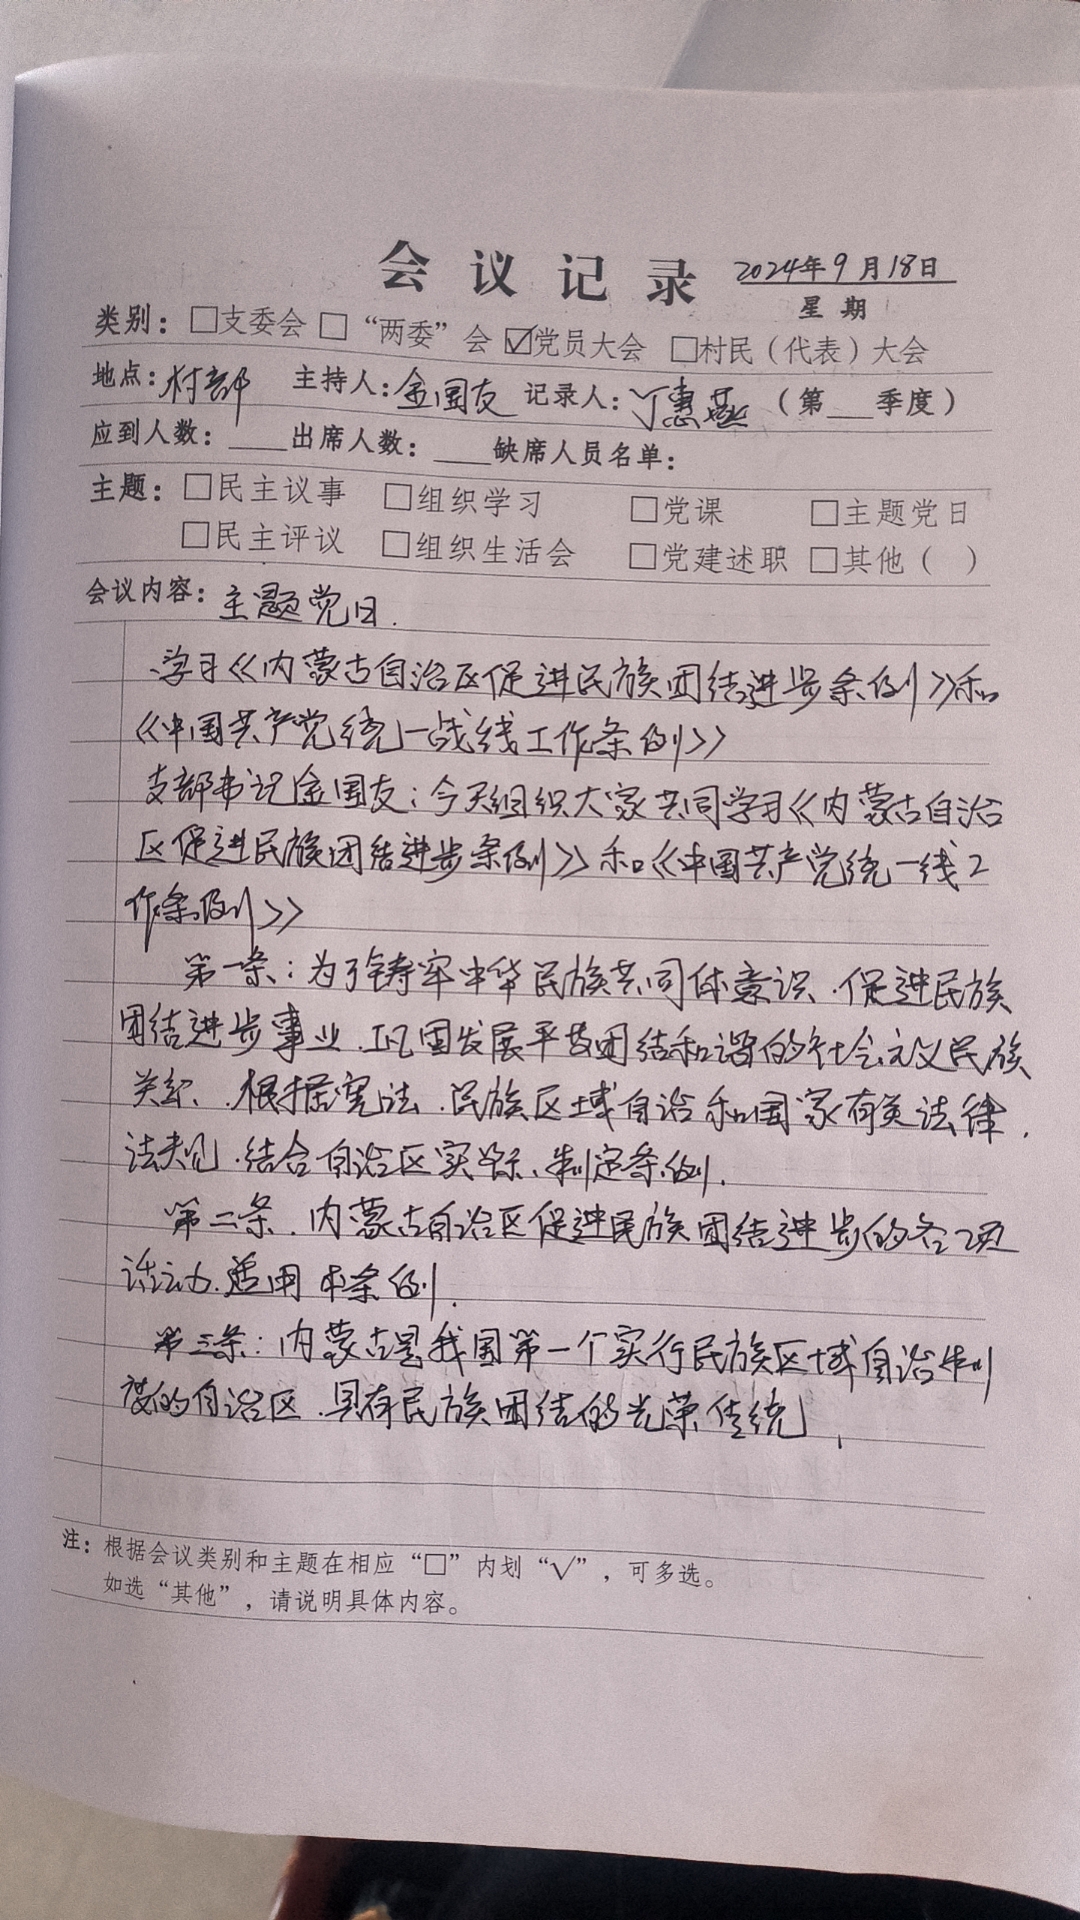 会议记录 2024年9月18日
星期
类别：□支委会 □“两委”会 ☑党员大会 □村民（代表）大会
地点：村部 主持人：金国友 记录人：丁惠燕 （第___季度）
应到人数：____出席人数：____缺席人员名单：
主题：□民主议事 □组织学习 □党课 □主题党日
□民主评议 □组织生活会 □党建述职 □其他（ ）
会议内容：主题党日.
、学习《内蒙古自治区促进民族团结进步条例》和
《中国共产党统一战线工作条例》
支部书记金国友：今天组织大家共同学习《内蒙古自治
区促进民族团结进步条例》和《中国共产党统一线工
作条例》
第一条：为了铸牢中华民族共同体意识.促进民族
团结进步事业.巩固发展平等团结和谐的社会主义民族
关系、.根据宪法.民族区域自治和国家有关法律.
法规.结合自治区实际、制定条例.
第二条.内蒙古自治区促进民族团结进步的各项
活动.适用本条例.
第三条：内蒙古是我国第一个实行民族区域自治制
度的自治区.具有民族团结的光荣传统,
注：根据会议类别和主题在相应“□”内划“√”，可多选。
如选“其他”，请说明具体内容。